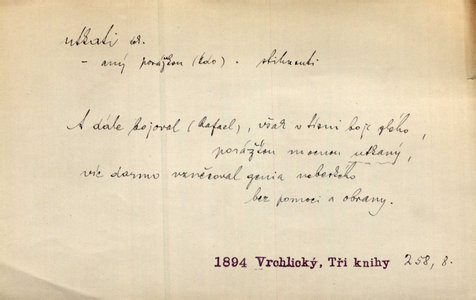 utkati
- aný porážkou (kdo) - stihnouti
A dále bojoval (Rafael), však v tísni boje zlého,
porážkou mocnou utkaný,
víc darmo vzněcoval genia nebeského
bez pomoci a obrany.
1894 Vrchlický, Tři knihy 258, 8.